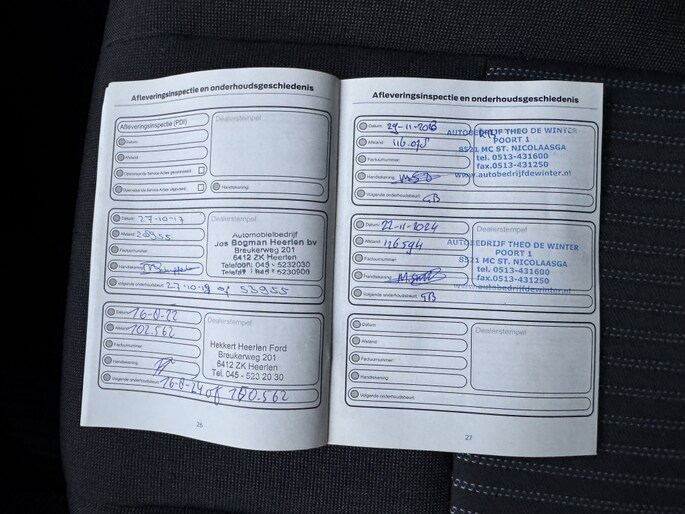 Afleveringsinspectie en onderhoudsgeschiedenis
Afleveringsinspectie (PDI)
Datum:
Afstand:
Handtekening:
Dealerstempel
Datum: 27-10-17
Afstand:
Factuurnummer:
Handtekening:
Volgende onderhoudsbeurt: 27-10-19 of 53955
Dealerstempel
Automobielbedrijf
Jos Bogman Heerlen bv
Breukerweg 201
6412 ZK Heerlen
Telefoon: 045 - 5232030
Datum:
Afstand: 102.562
Factuurnummer:
Handtekening:
Volgende onderhoudsbeurt:
Dealerstempel
Hekkert Heerlen Ford
Breukerweg 201
6412 ZK Heerlen
Tel. 045 - 523 20 30
26
Afleveringsinspectie en onderhoudsgeschiedenis
Datum:
Afstand:
Factuurnummer:
Handtekening:
Volgende onderhoudsbeurt: GB
AUTOBEDRIJF THEO DE WINTER
POORT 1
8521 MC ST. NICOLAASGA
tel. 0513-431600
fax.0513-431250
www.autobedrijfdewinter.nl
Datum: 22-11-2024
Afstand: 126594
Factuurnummer:
Handtekening:
Volgende onderhoudsbeurt: GB
Dealerstempel
AUTOBEDRIJF THEO DE WINTER
POORT 1
8521 MC ST. NICOLAASGA
tel. 0513-431600
fax.0513-431250
www.autobedrijfdewinter.nl
Datum:
Afstand:
Factuurnummer:
Handtekening:
Volgende onderhoudsbeurt:
Dealerstempel
27